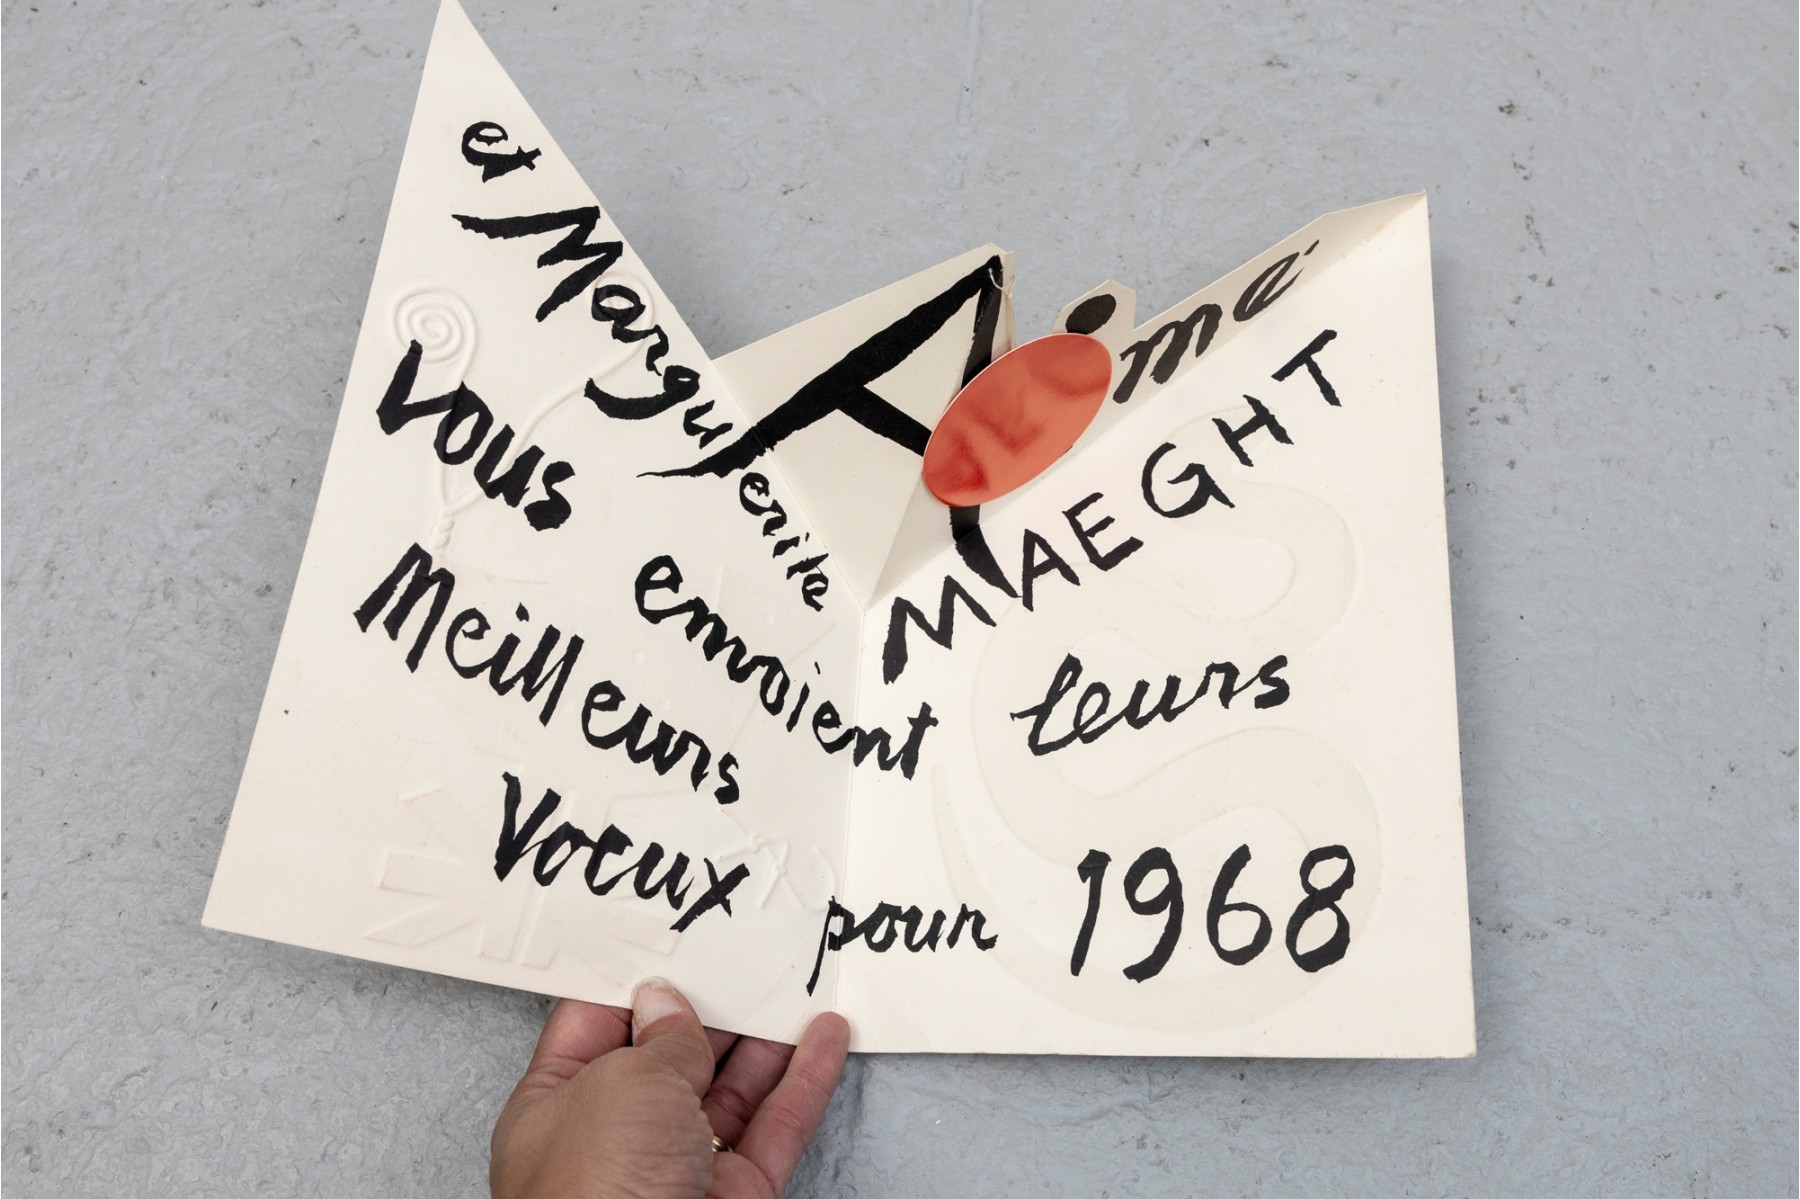 Aimé
et Marguerite
MAEGHT
vous envoient leurs
Meilleurs
Voeux pour 1968